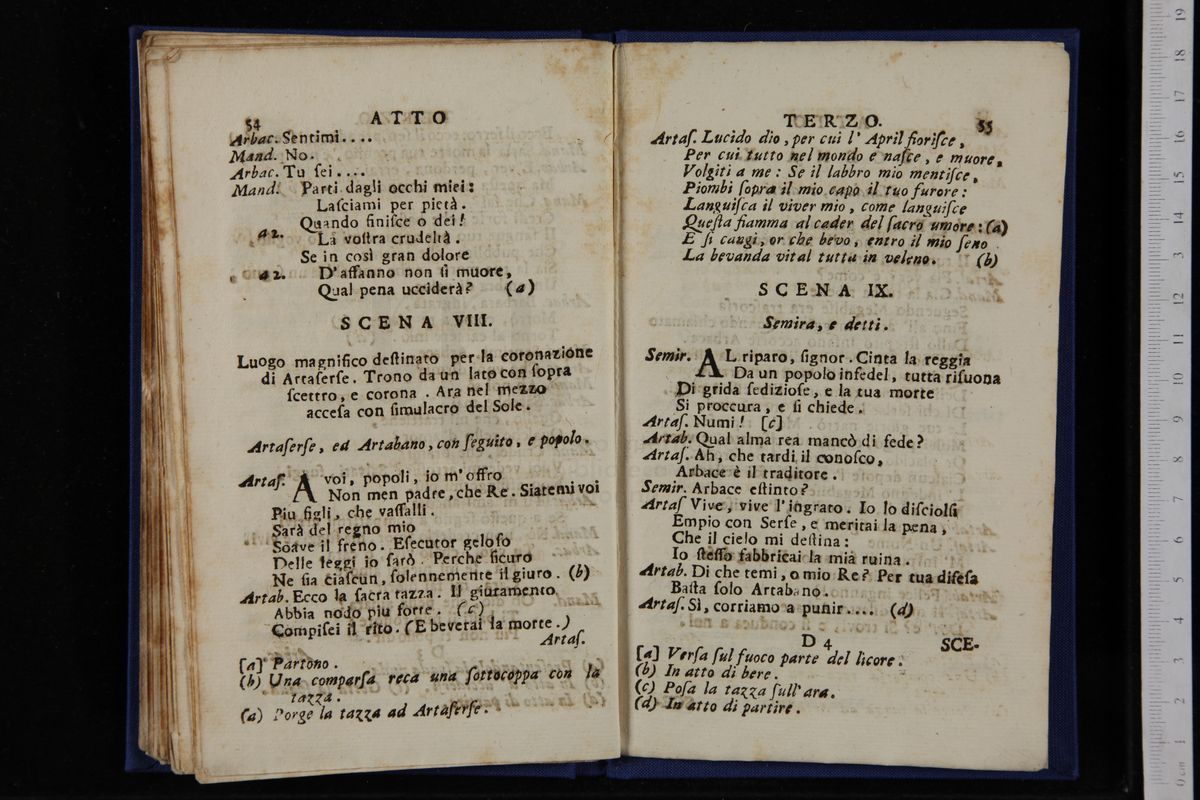 54 ATTO
Arbac. Sentimi....
Mand. No.
Arbac. Tu ſei....
Mand. Parti dagli occhi miei:
Laſciami per pietà.
Quando finiſce o dei!
a 2. La voſtra crudeltà.
Se in così gran dolore
a 2. D'affanno non ſi muore,
Qual pena ucciderà? (a)
SCENA VIII.
Luogo magnifico deſtinato per la coronazione
di Artaſerſe. Trono da un lato con ſopra
ſcettro, e corona. Ara nel mezzo
acceſa con ſimulacro del Sole.
Artaſerſe, ed Artabano, con ſeguito, e popolo.
Artaſ. A voi, popoli, io m'offro
Non men padre, che Re. Siatemi voi
Piu figli, che vaſſalli.
Sarà del regno mio
Soave il freno. Eſecutor geloſo
Delle leggi io ſarò. Perche ſicuro
Ne ſia ciaſcun, ſolennemente il giuro. (b)
Artab. Ecco la ſacra tazza. Il giuramento
Abbia nodo piu forte. (c)
Compiſei il rito. (E beverai la morte.)
Artaſ.
[a] Partono.
(b) Una comparſa reca una ſottocoppa con la
tazza.
(a) Porge la tazza ad Artaſerſe.
TERZO. 55
Artaſ. Lucido dio, per cui l'April fioriſce,
Per cui tutto nel mondo e naſce, e muore,
Volgiti a me: Se il labbro mio mentiſce,
Piombi ſopra il mio capo il tuo furore:
Languiſca il viver mio, come languiſce
Queſta fiamma al cader del ſacro umore: (a)
E ſi cangi, or che bevo, entro il mio ſeno
La bevanda vital tutta in veleno. (b)
SCENA IX.
Semira, e detti.
Semir. AL riparo, ſignor. Cinta la reggia
Da un popolo infedel, tutta riſuona
Di grida ſedizioſe, e la tua morte
Si proccura, e ſi chiede.
Artaſ. Numi! [c]
Artab. Qual alma rea mancò di fede?
Artaſ. Ah, che tardi il conoſco,
Arbace è il traditore.
Semir. Arbace eſtinto?
Artaſ Vive, vive l'ingrato. Io lo diſciolſi
Empio con Serſe, e meritai la pena,
Che il cielo mi deſtina:
Io ſteſſo fabbricai la mia ruina.
Artab. Di che temi, o mio Re? Per tua difeſa
Baſta ſolo Artabano.
Artaſ. Sì, corriamo a punir.... (d)
D 4 SCE-
[a] Verſa ſul fuoco parte del licore.
(b) In atto di bere.
(c) Poſa la tazza ſull'ara.
(d) In atto di partire.